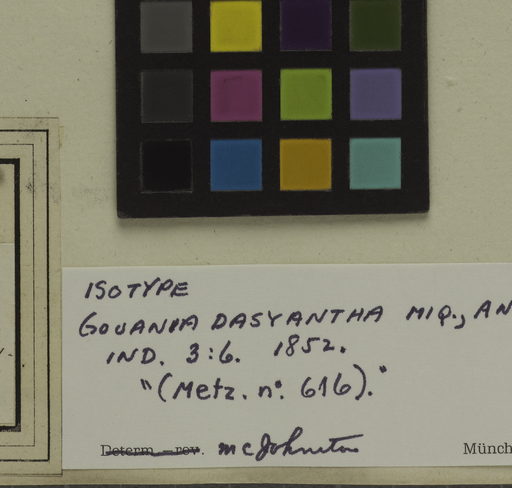 ISOTYPE
GOUANIA DASYANTHA MIQ., AN
IND. 3:6. 1852.
"(Metz. nº. 616)."
Determ. – rev. MCJohnston
Münch